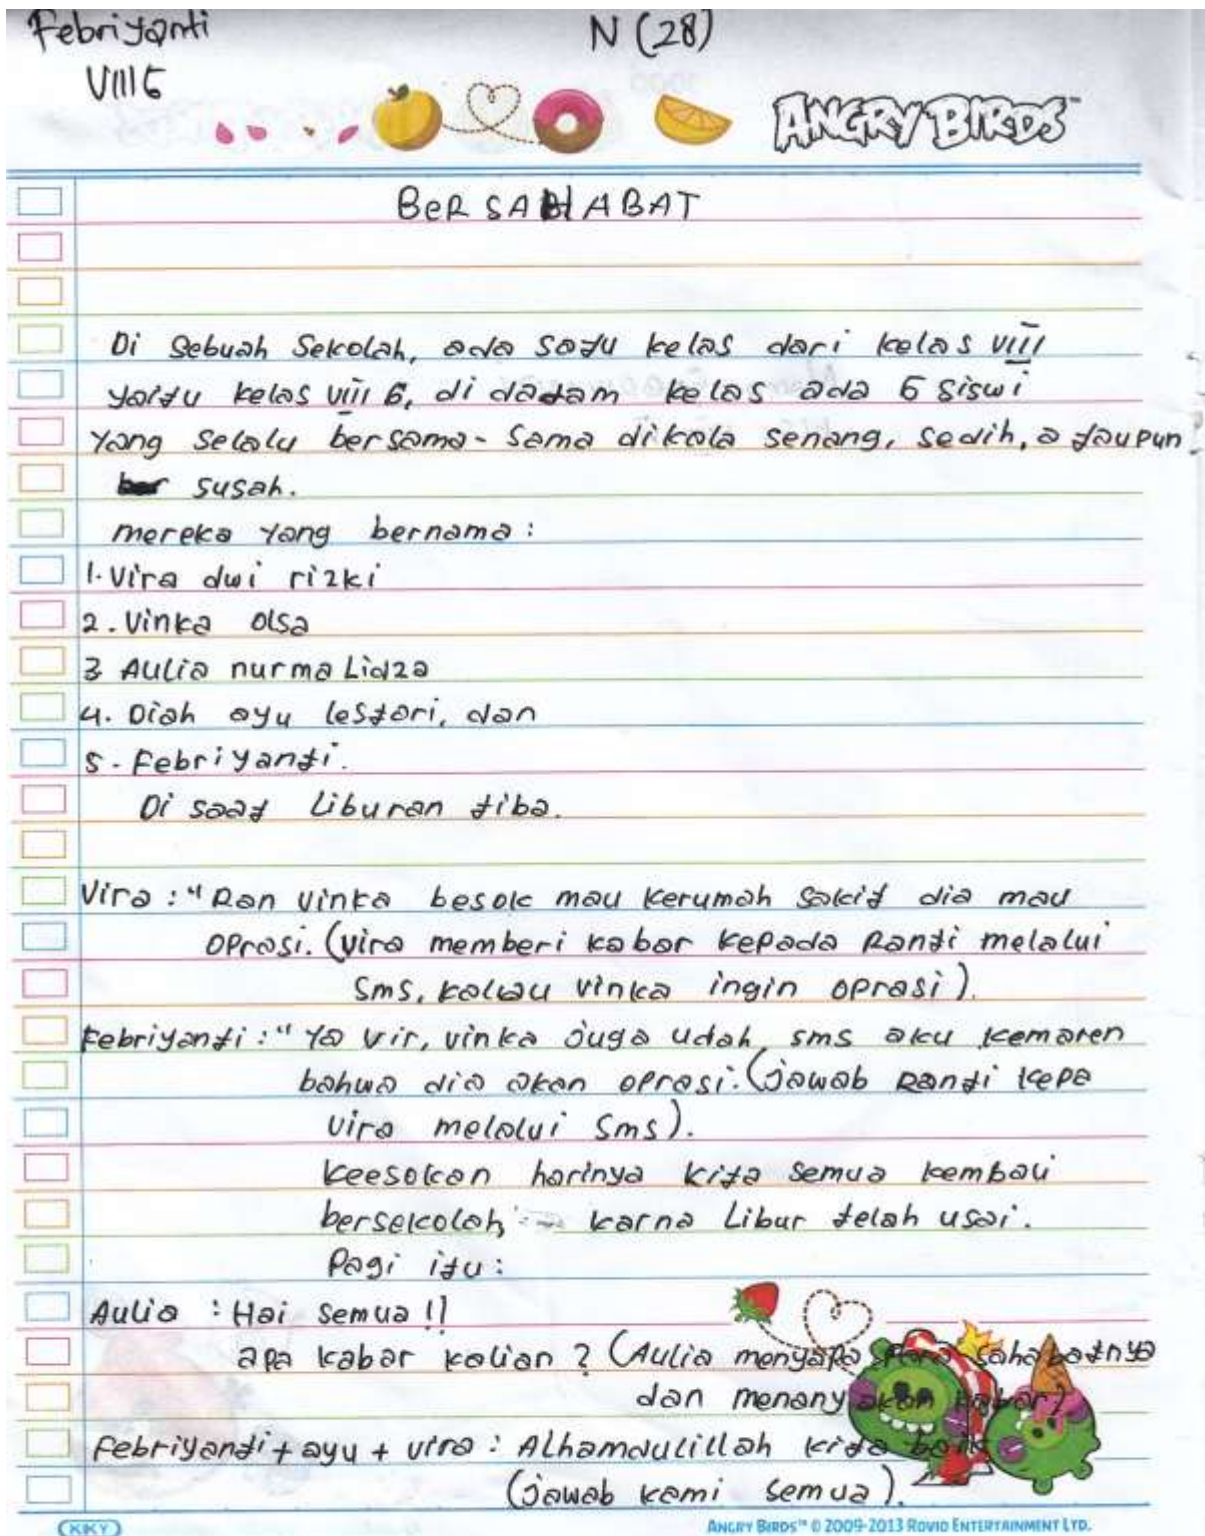 Febriyanti N (28)
VIII 6
ANGRY BIRDS™
BeRSAHABAT
Di sebuah sekolah, ada satu kelas dari kelas VIII
yaitu kelas VIII 6, di dalam kelas ada 5 siswi
yang selalu bersama-sama dikala senang, sedih, ataupun
susah.
mereka yang bernama:
1. Vira dwi rizki
2. Vinka olsa
3 Aulia nurma Lidza
4. Diah ayu lestari, dan
5. Febriyanti.
Di saat Liburan tiba.
Vira : "Ran vinka besok mau kerumah sakit dia mau
oprasi. (vira memberi kabar kepada Ranti melalui
sms, kalau vinka ingin oprasi).
Febriyanti : "Ya vir, vinka juga udah sms aku kemaren
bahwa dia akan oprasi. (jawab Ranti kepa
vira melalui sms).
keesokan harinya kita semua kembali
bersekolah, karna Libur telah usai.
Pagi itu :
Aulia : Hai semua !!
apa kabar kalian ? (Aulia menyapa para sahabatnya
dan menanyakan kabar)
Febriyanti + ayu + vira : Alhamdulillah kita baik
(jawab kami semua).
KIKY
ANGRY BIRDS™ © 2009-2013 ROVIO ENTERTAINMENT LTD.